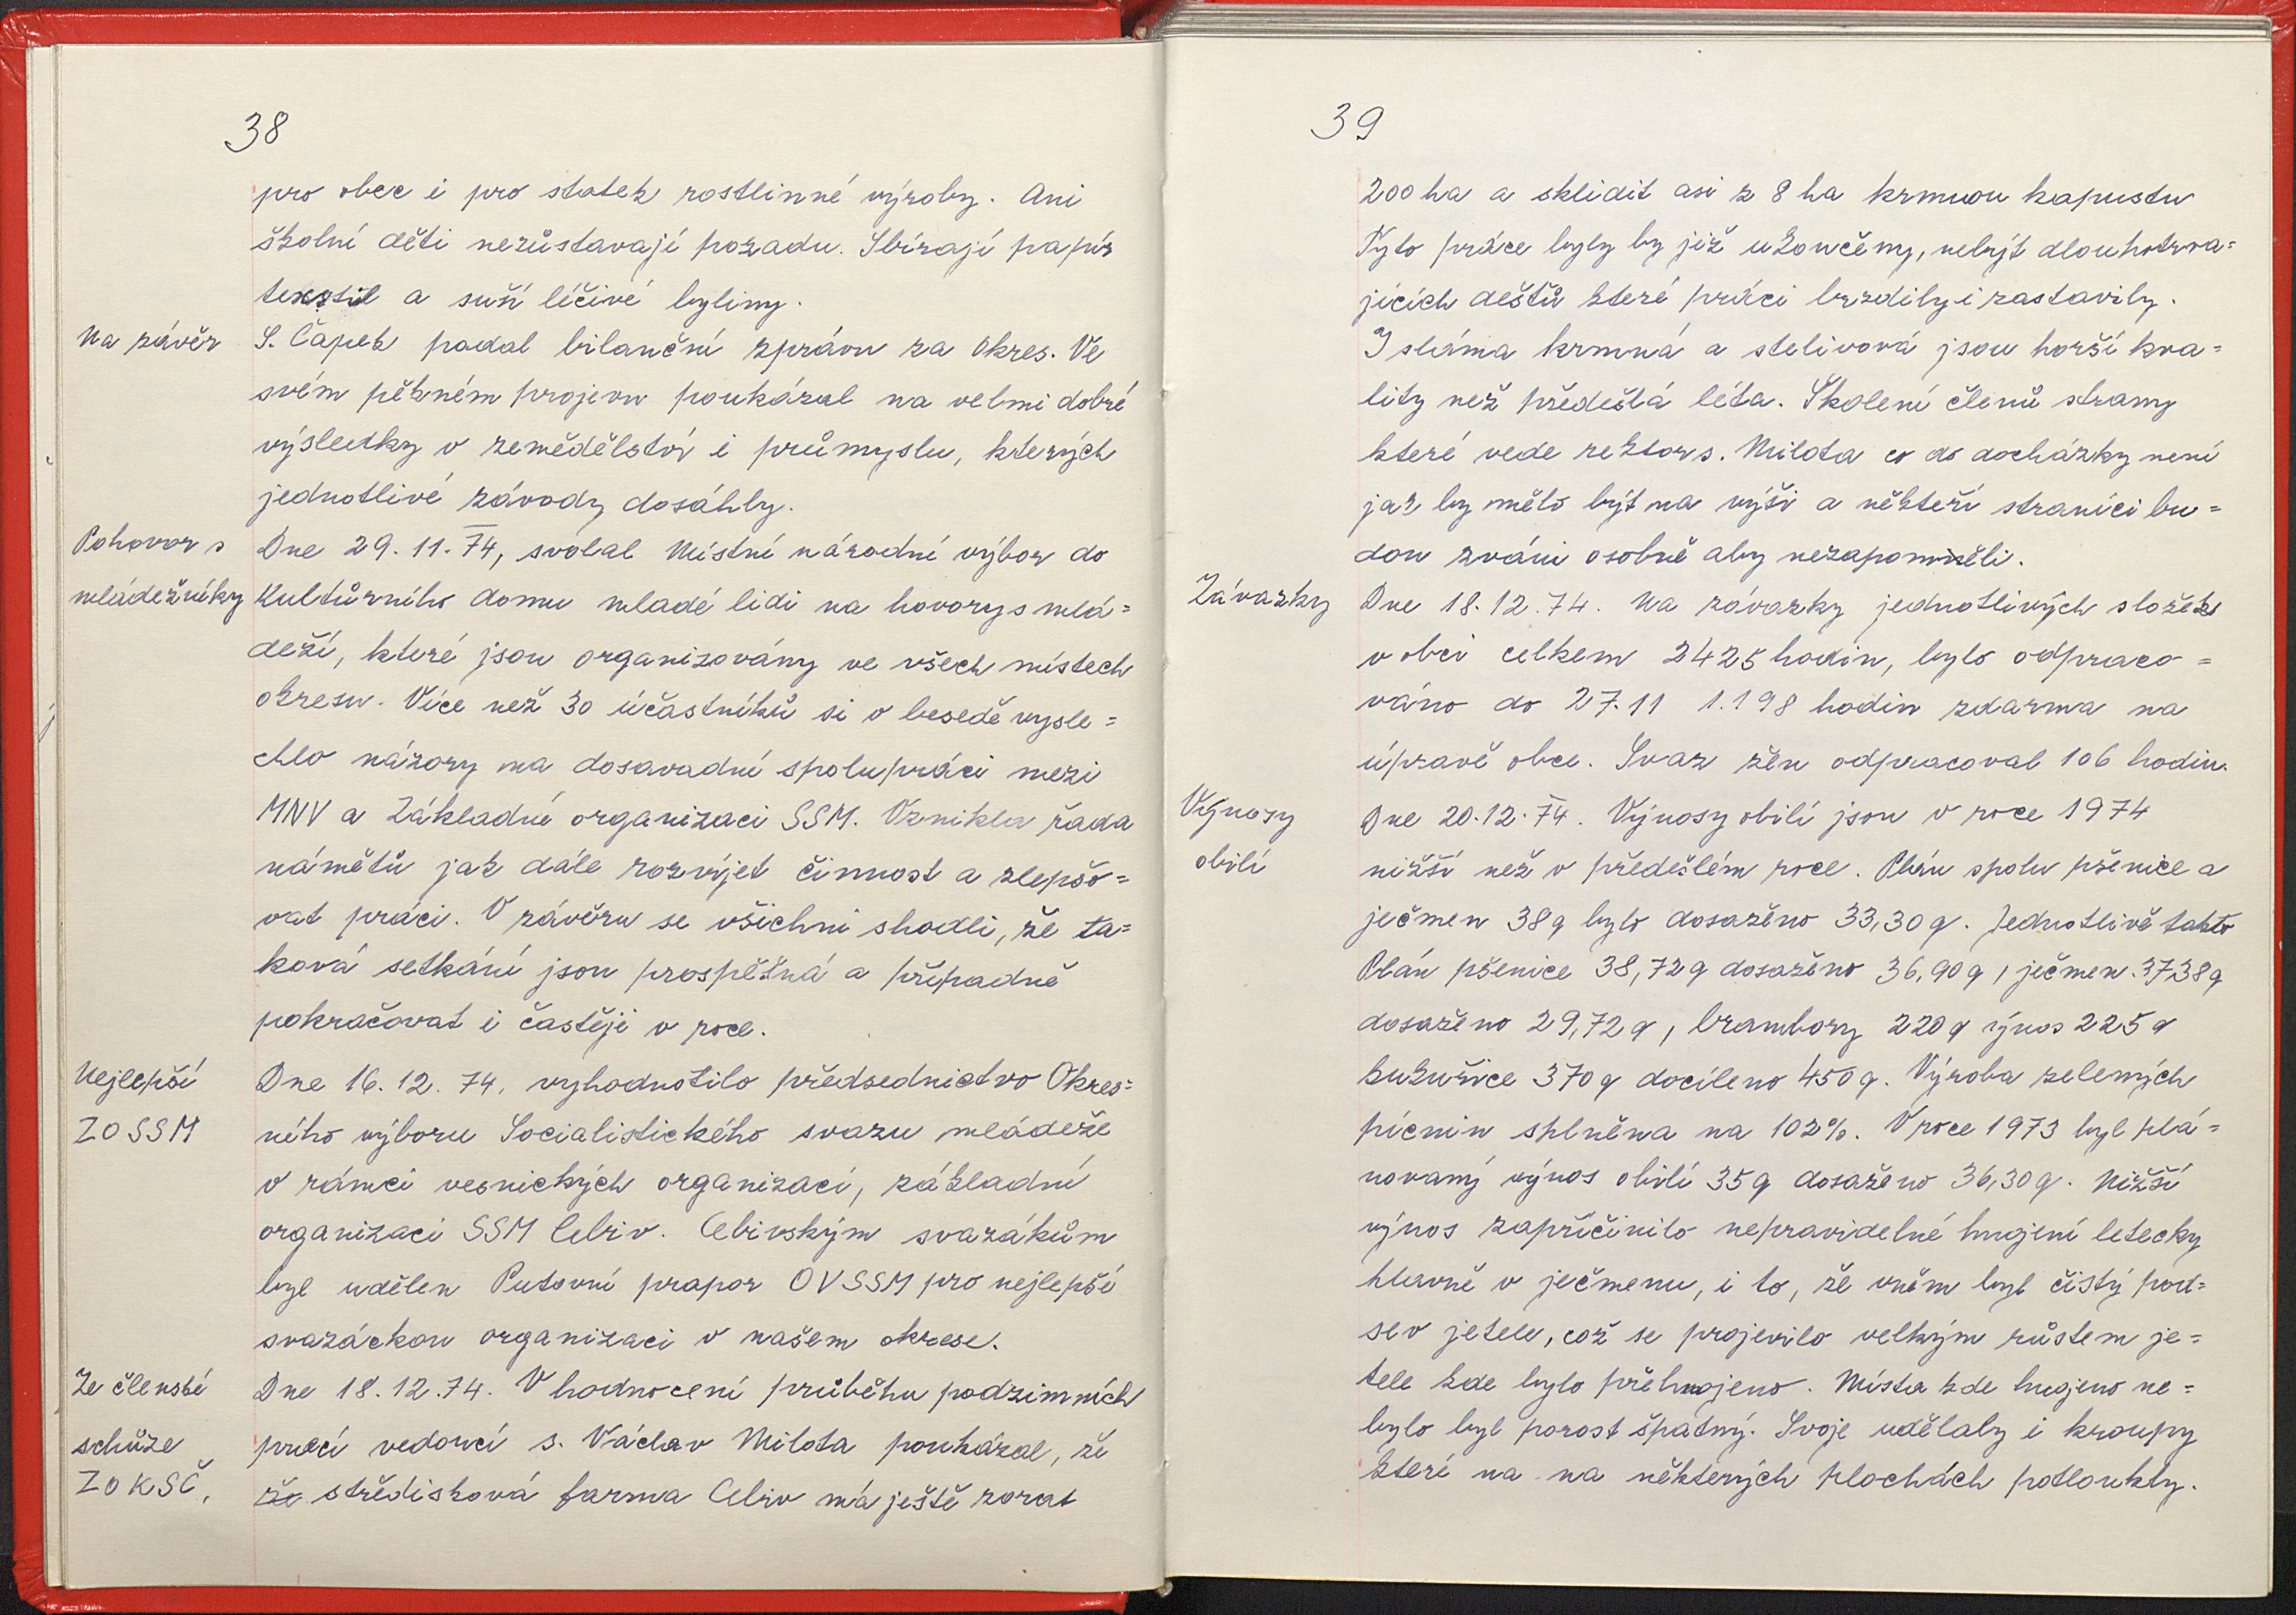 38
pro obec i pro statek rostlinné výroby. Ani
školní děti nezůstavají pozadu. Sbírají papír
textil a suší léčivé byliny.
Na závěr S. Čapek podal bilanční zprávu za Okres. Ve
svém pěkném projevu poukázal na velmi dobré
výsledky v zemědělství i průmyslu, kterých
jednotlivé závody dosáhly.
Pohovor s Dne 29. 11. 74, svolal Místní národní výbor do
mládežníky Kultůrního domu mladé lidi na hovory s mlá=
deží, které jsou organizovány ve všech místech
okresu. Více než 30 účastníků si v besedě vysle=
chlo názory na dosavadní spolupráci mezi
MNV a Základní organizaci SSM. Vznikla řada
námětů jak dále rozvíjet činnost a zlepšo=
vat práci. V závěru se všichni shodli, že ta=
ková setkání jsou prospěšná a případně
pokračovat i častěji v roce.
Nejlepší Dne 16. 12. 74, vyhodnotilo předsednictvo Okres=
ZO SSM ního výboru Socialistického svazu mládeže
v rámci vesnických organizací, základní
organizaci SSM Cebiv. Cebivským svazákům
byl udělen Putovní prapor OV SSM pro nejlepší
svazáckou organizaci v našem okrese.
Ze členské Dne 18. 12. 74. V hodnocení průběhu podzimních
schůze prací vedoucí s. Václav Milota poukázal, že
ZO KSČ, že středisková farma Cebiv má ještě zorat
39
200 ha a sklidit asi z 8 ha krmnou kapustu
Tyto práce byly by již ukončeny, nebýt dlouhotrva=
jících dešťů které práci brzdily i zastavily.
I sláma krmná a stelivová jsou horší kva=
lity než předešlá léta. Školení členů strany
které vede rektor s. Milota co do docházky není
jak by mělo být na výši a někteří straníci bu=
dou zváni osobně aby nezapomněli.
Závazky Dne 18. 12. 74. Na závazky jednotlivých složek
v obci celkem 2425 hodin, bylo odpraco=
váno do 27. 11 1.198 hodin zdarma na
úpravě obce. Svaz žen odpracoval 106 hodin.
Výnosy Dne 20. 12. 74. Výnosy obilí jsou v roce 1974
obilí nižší než v předešlém roce. Plán spolu pšenice a
ječmen 38 q bylo dosaženo 33,30 q. Jednotlivě takto
Plán pšenice 38,72 q dosaženo 36,90 q, ječmen. 37,38 q
dosaženo 29,72 q, brambory 220 q výnos 225 q
kukuřice 370 q docíleno 450 q. Výroba zelených
pícnin splněna na 102 %. V roce 1973 byl plá=
novaný výnos obilí 35 q dosaženo 36,30 q. Nižší
výnos zapříčinilo nepravidelné hnojení letecky
hlavně v ječmenu, i to, že v něm byl čistý pod=
sev jetele, což se projevilo velkým růstem je=
tele kde bylo přehnojeno. Místa kde hnojeno ne=
bylo byl porost špatný. Svoje udělaly i kroupy
které na na některých plochách potloukly.